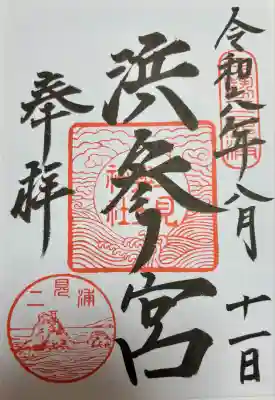 令和六年八月
十一日
浜参宮
奉拝
二見浦